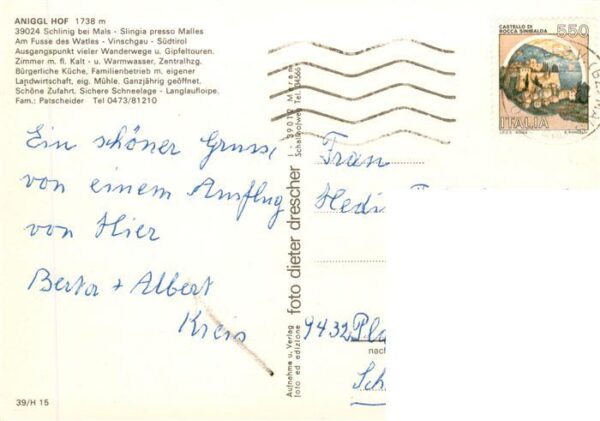 ANIGGL HOF 1738 m
39024 Schlinig bei Mals - Slingia presso Malles
Am Fusse des Watles - Vinschgau - Südtirol
Ausgangspunkt vieler Wanderwege u. Gipfeltouren.
Zimmer m. fl. Kalt - u. Warmwasser, Zentralhzg.
Bürgerliche Küche, Familienbetrieb m. eigener
Landwirtschaft, eig. Mühle. Ganzjährig geöffnet.
Schöne Zufahrt. Sichere Schneelage - Langlaufloipe.
Fam.: Patscheider Tel 0473/81210
Ein schöner Gruss,
von einem Ausflug
von Hier
Berta + Albert
Kreis
39/H 15
foto dieter drescher
I - 39012 Meran
Aufnahme u. Verlag
foto ed edizione
CASTELLO DI
ROCCA SINIBALDA
550
ITALIA
Frau
Hedi
9432
nach
Sch